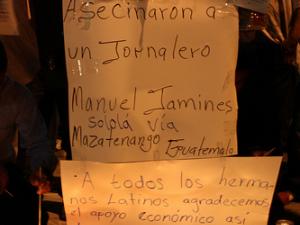 Asecinaron a
un Jornalero
Manuel Jamines
solplá vía
Mazatenango Eguatemalo
A todos los herma
nos Latinos agradecemos
el apoyo económico así